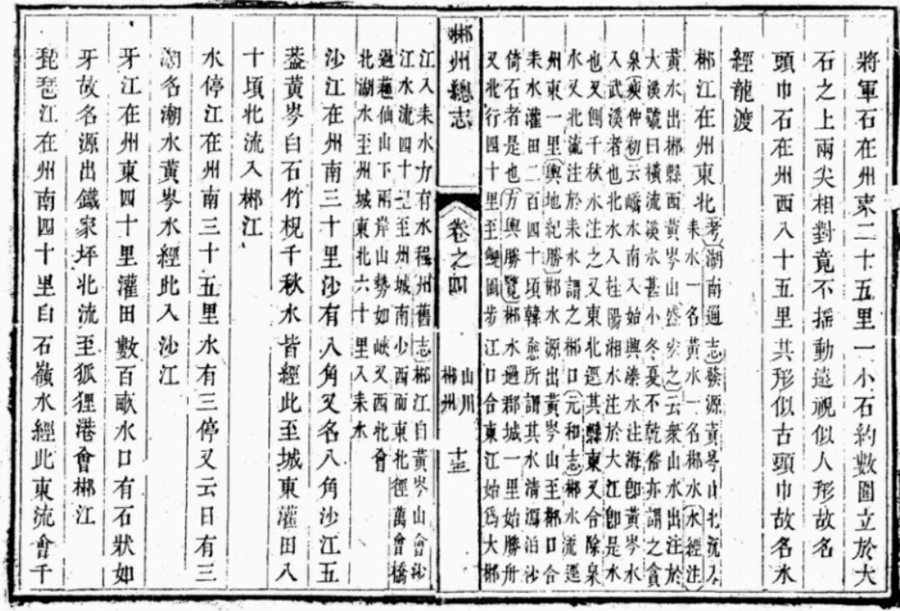 將軍石在州東二十五里一小石約數圍立於大
石之上兩尖相對竟不搖動遠視似人形故名
頭巾石在州西八十五里其形似古頭巾故名水
經龍渡
郴江在州東北考湖南通志發源黃岑山北流入
耒水一名黃水一名郴水水經注
黃水出郴縣西黃岑山盛宏之云衆山水出注於
大溪號曰橫流溪溪水甚小冬夏不乾俗亦謂之貪
泉庾仲初云嶠水南入始興溱水注海卽黃岑水
入武溪者也北水入桂陽湘水注於大江卽是水
也又側千秋水注之又東北逕其縣東又合除泉
水又北流注於耒水謂之郴口元和志郴水流逕
州東一里輿地紀勝郴水源出黃岑山至郴口合
耒水灌田二百四十頃韓愈所謂其水清瀉泊沙
倚石者是也方輿勝覽郴水過郡城一里始勝舟
又北行四十里至鯉園步江口合東江始爲大郴
郴州總志
卷之四
山川
郴州
十三
江入耒水方有水程州舊志郴江自黃岑山會沙
江水流四十里至州城南少西而東北徑萬會橋
過蘇仙山下兩岸山勢如峽又西北會
北湖水至州城東北六十里入耒水
沙江在州南三十里沙有八角又名八角沙江五
蓋黃岑白石竹梘千秋水皆經此至城東灌田八
十頃北流入郴江
水停江在州南三十五里水有三停又云日有三
潮名潮水黃岑水經此入沙江
牙江在州東四十里灌田數百畝水口有石狀如
牙故名源出鐵家坪北流至狐狸港會郴江
琵琶江在州南四十里白石嶺水經此東流會千